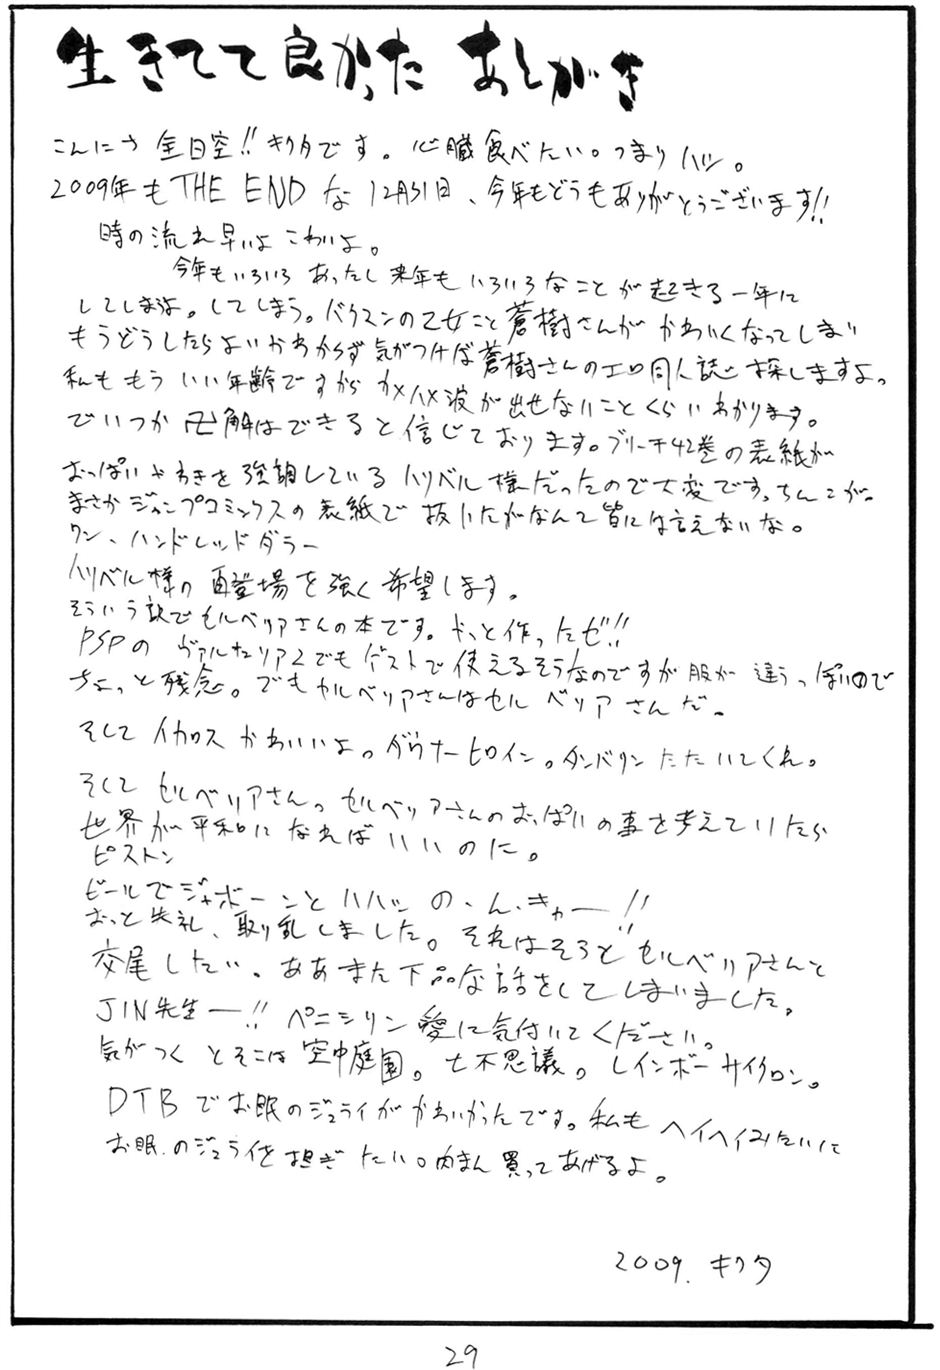 生きてて良かった あとがき
こんにちわ 全日空!! キクタです。心臓食べたい。つまりハツ。
2009年も THE END な 12月31日、今年もどうもありがとうございます!!
時の流れ早いよ こわいよ。
今年もいろいろ あったし 来年も いろいろなことが起きる一年に
してしまうよ。してしまう。バクマンの乙女こと蒼樹さんが かわいくなってしまい
もうどうしたらよいかわからず 気がつけば蒼樹さんのエロ同人誌を探しますよ。
私も もう いい年齢ですから カメハメ波が出せないことくらいわかります。
でいつか 卍解はできると信じております。ブリーチ42巻の表紙が
おっぱいやわきを強調しているハリベル様だったので大変です。ちんこが。
まさかジャンプコミックスの表紙で 抜いたがなんて皆には言えないな。
ワン、ハンドレッドダラー
ハリベル様の再登場を強く希望します。
そういう訳でセルベリアさんの本です。やっと作ったゼ!!
PSPの ヴァルキュリア2でもゲストで使えるそうなのですが服が 違うっぽいので
ちょっと残念。でもセルベリアさんはセルベリアさんだ。
そして イカロス かわいいよ。ダウナーヒロイン。タンバリン たたいてくれ。
そして セルベリアさん。セルベリアさんのおっぱいの事を考えていたら
世界が平和に なればいいのに。
ピストン
ビールでジャボーンと ハハッ の、ん、きゃー!!
おっと失礼、取り乱しました。それはそうと セルベリアさんと
交尾したい。ああまた下品な話をしてしまいました。
JIN先生ー!! ペニシリン 愛に気付いてください。
気がつく とそこは 空中庭園。七不思議。レインボーサイクロン。
DTBでお眠のジュライがかわいかったです。私も ヘイヘイみたいに
お眠のジュライを担ぎたい。肉まん買ってあげるよ。
2009. キクタ
29